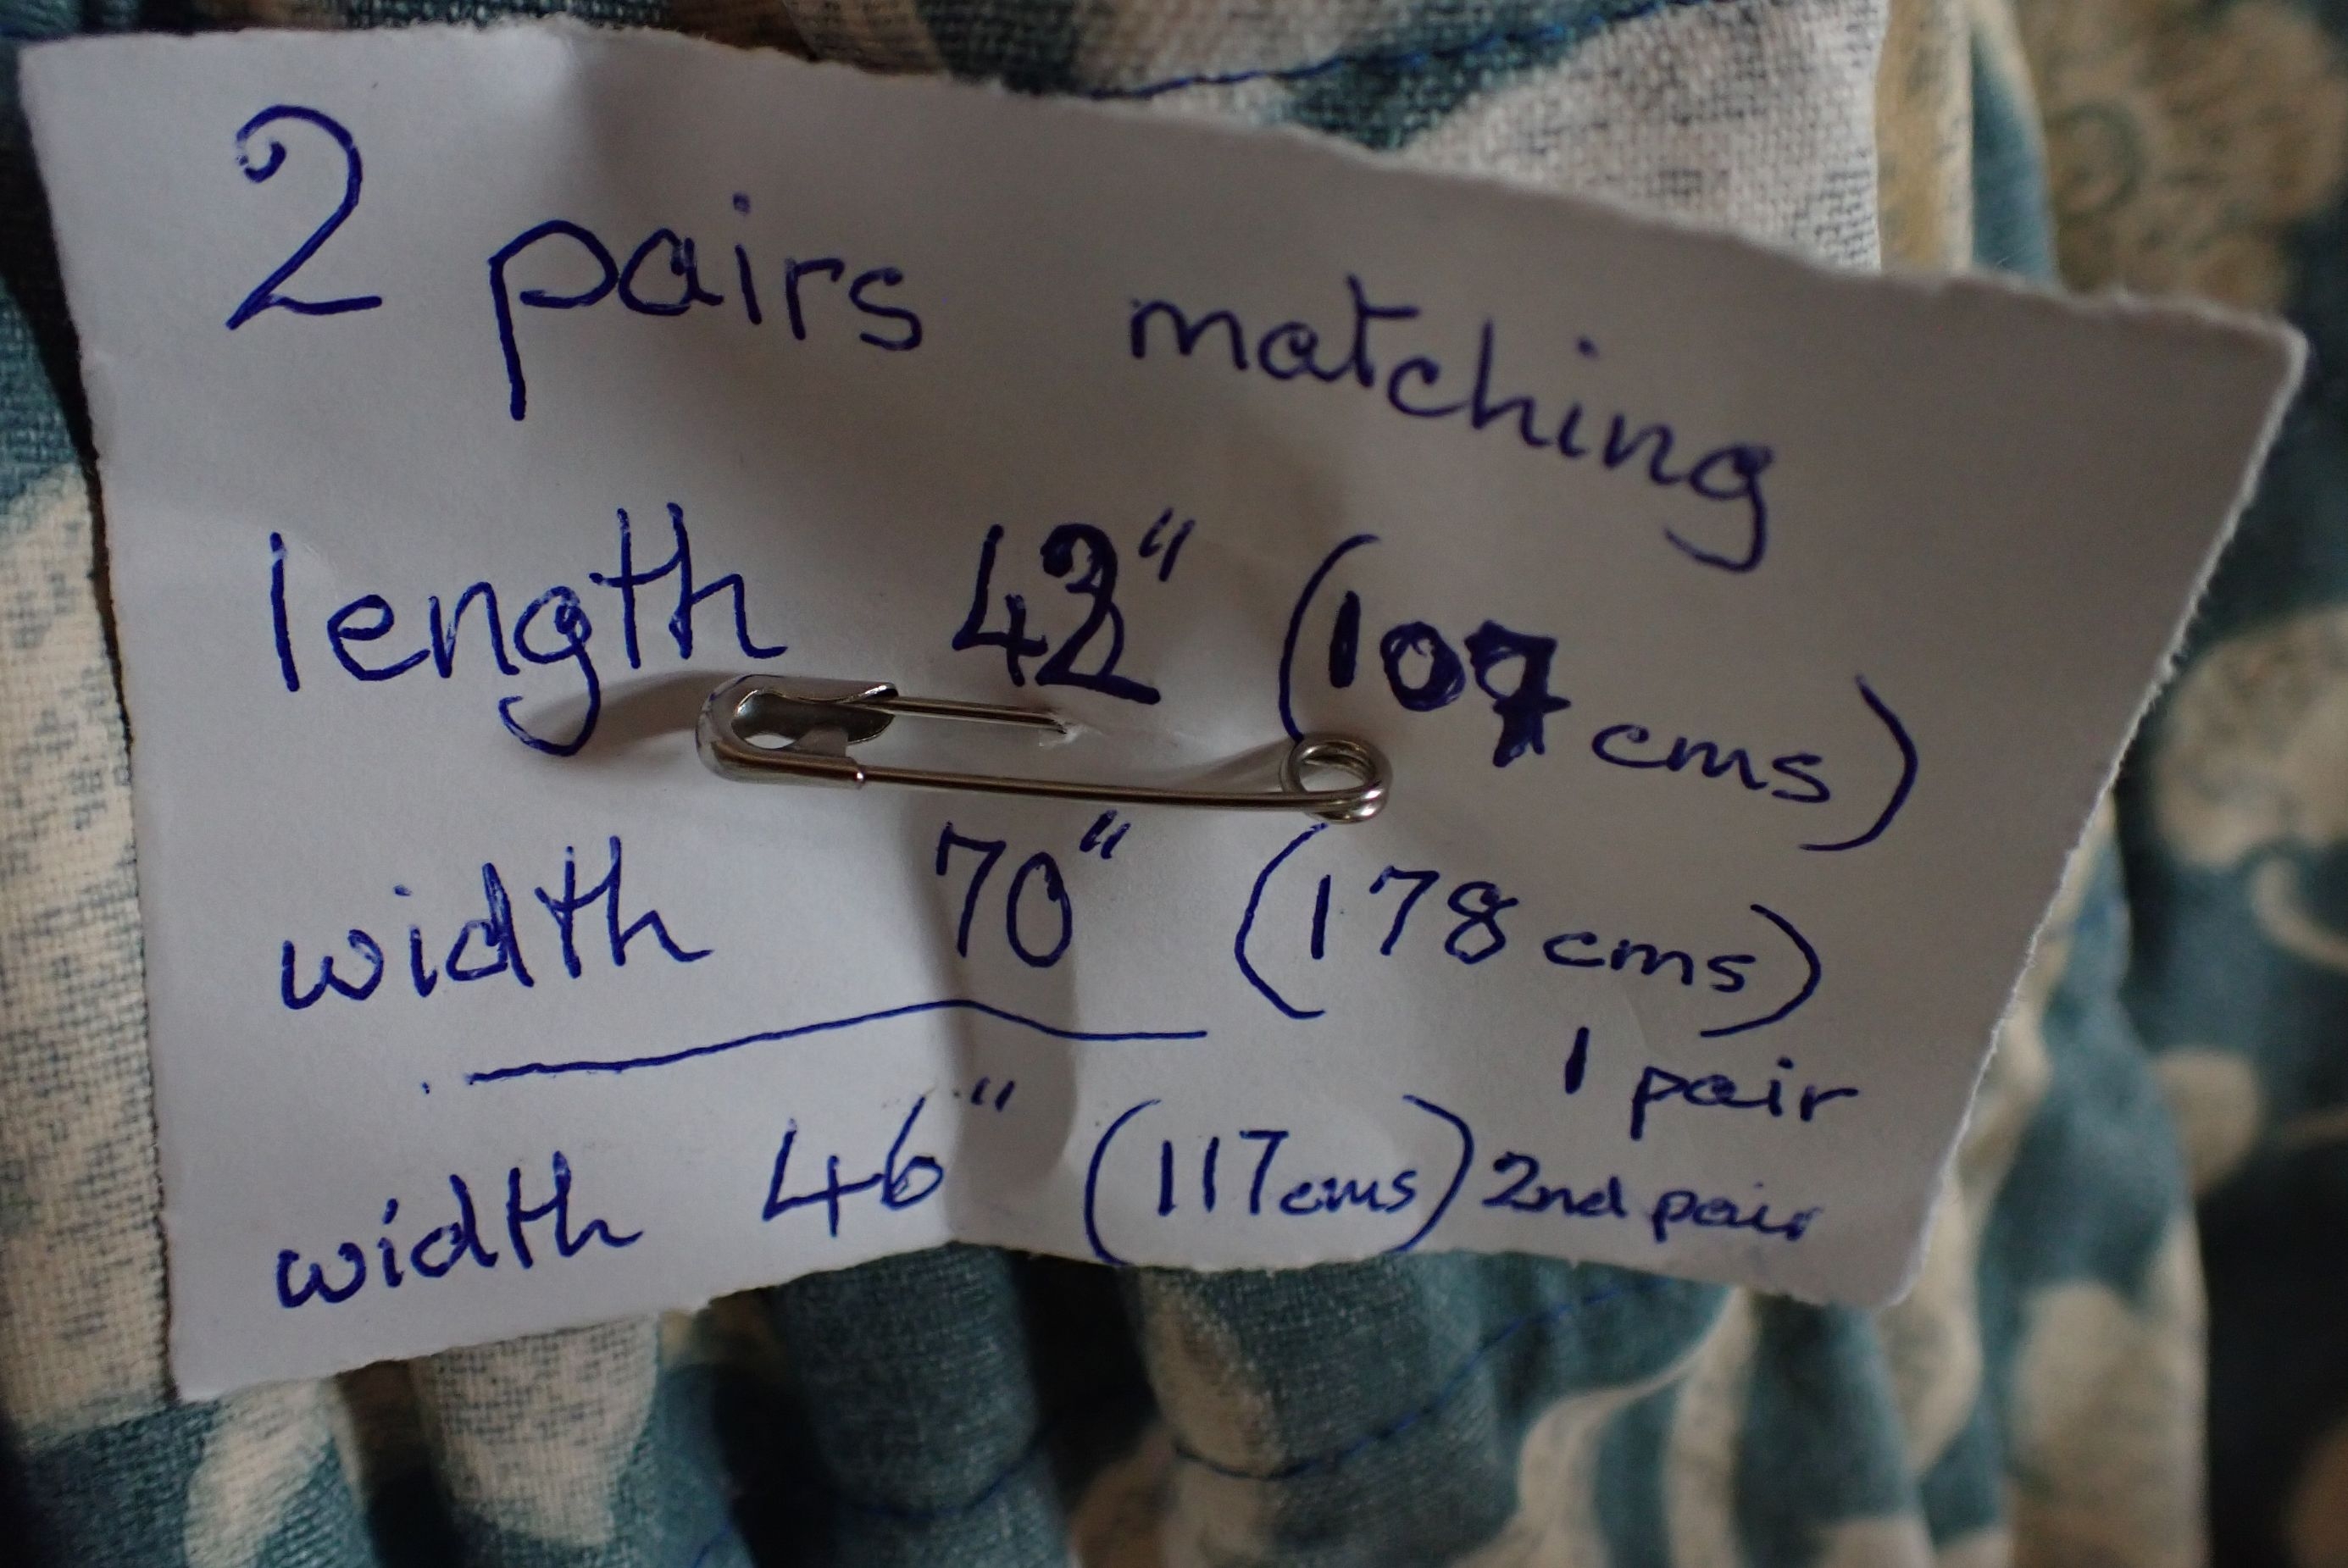 2 pairs matching
length 42" (107 cms)
width 70" (178 cms)
1 pair
width 46" (117cms) 2nd pair